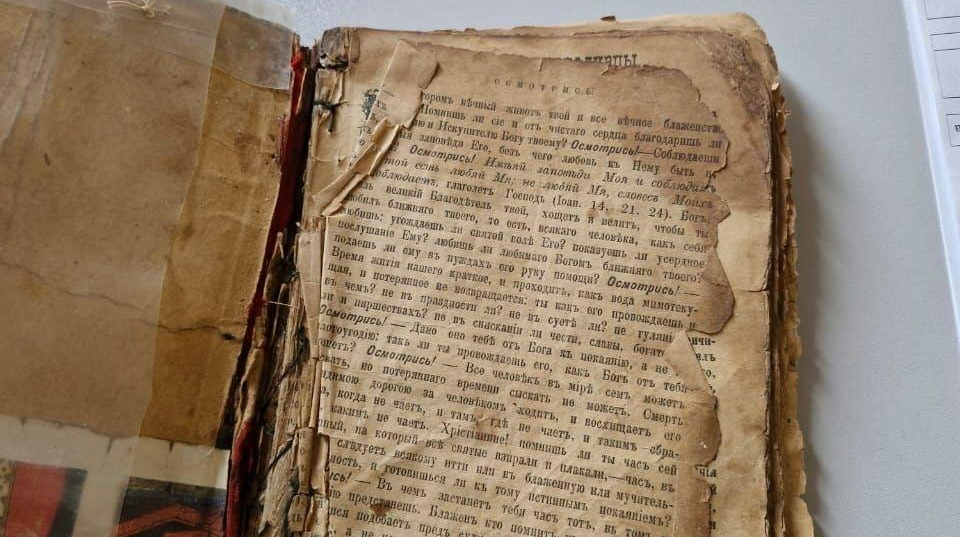 ОСМОТРИСЬ
торомъ вѣчный животъ твой и все вѣчное блаженств
Помнишь ли сіе и отъ чистаго сердца благодаришь ли
ю и Искупителю Богу твоему? Осмотрись!—Соблюдаеши
заповѣди Его, безъ чего любовь къ Нему быть н
Осмотрись! Имѣяй заповѣди Моя и соблюдая
той есть любяй Мя; не любяй Мя, словесъ Моихъ
облюдаетъ, глаголетъ Господь (Іоан. 14, 21. 24). Богъ,
великій Благодѣтель твой, хощетъ и велитъ, чтобы ты
любилъ ближняго твоего, то есть, всякаго человѣка, какъ себя
любишь: угождаешь ли святой волѣ Его? показуешь ли усердное
послушаніе Ему? любишь ли любимаго Богомъ ближняго твоего?
подаешь ли ему въ нуждахъ его руку помощи? Осмотрись! —
Время житія нашего краткое, и проходитъ, какъ вода мимотеку-
щая, и потерянное не возвращается: ты какъ его провождаешь и
въ чемъ? не въ праздности ли? не въ суетѣ ли? не гуляні
ли и пиршествахъ? не въ снисканіи ли чести, славы, богат
Осмотрись! — Дано оно тебѣ отъ Бога къ покаянію, а не
лотоугодію: такъ ли ты провождаешь его, какъ Богъ отъ тебя
Осмотрись! — Все человѣкъ въ мірѣ семъ можетъ
вать, но потеряннаго времени сыскать не можетъ. Смерть
димою дорогою за человѣкомъ ходитъ, и восхищаетъ его
а, когда не чаетъ, и тамъ, гдѣ не чаетъ, и такимъ обра-
какимъ не чаетъ. Христіанине! помнишь ли ты часъ сей
ный, на который всѣ святые взирали и плакали,—часъ, въ
слѣдуетъ всякому итти или въ блаженную или мучитель-
ность, и готовишься ли къ тому истиннымъ покаяніемъ?
сь! — Въ чемъ застанетъ тебя часъ тотъ, въ томъ
но предстанешь. Блаженъ кто помнитъ
подобаетъ предъ